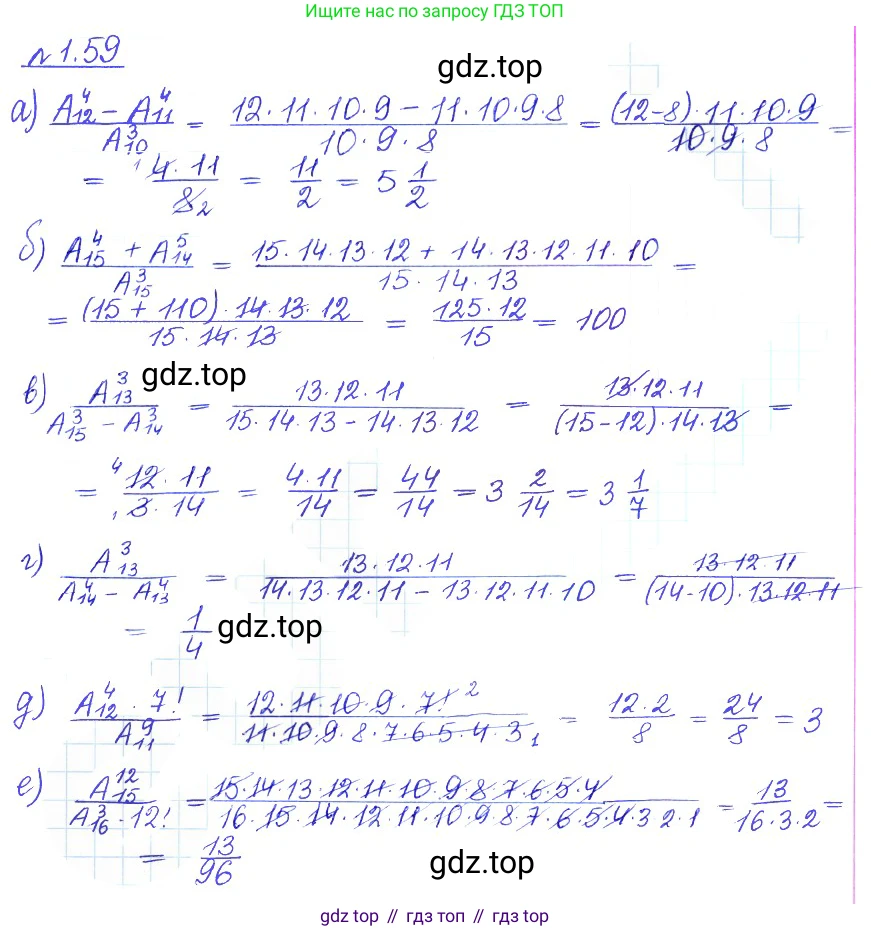 Ищите нас по запросу ГДЗ ТОП
№1.59
gdz.top
а) (A₁₂⁴ − A₁₁⁴)/A₁₀³ = (12·11·10·9 − 11·10·9·8)/(10·9·8) = ((12−8)·11·10·9)/(10·9·8) =
= (4·11)/8 = 11/2 = 5 1/2
б) (A₁₅⁴ + A₁₄⁵)/A₁₅³ = (15·14·13·12 + 14·13·12·11·10)/(15·14·13) =
= ((15 + 110)·14·13·12)/(15·14·13) = (125·12)/15 = 100
gdz.top
в) A₁₃³/(A₁₅³ − A₁₄³) = (13·12·11)/(15·14·13 − 14·13·12) = (13·12·11)/((15−12)·14·13) =
= (12·11)/(3·14) = (4·11)/14 = 44/14 = 3 2/14 = 3 1/7
г) A₁₃³/(A₁₄⁴ − A₁₃⁴) = (13·12·11)/(14·13·12·11 − 13·12·11·10) = (13·12·11)/((14−10)·13·12·11)
= 1/4
gdz.top
д) (A₁₂⁴ · 7!)/A₁₁⁹ = (12·11·10·9·7!)/(11·10·9·8·7·6·5·4·3) = (12·2)/8 = 24/8 = 3
е) A₁₅¹²/(A₁₆³·12!) = (15·14·13·12·11·10·9·8·7·6·5·4)/(16·15·14·12·11·10·9·8·7·6·5·4·3·2·1) = 13/(16·3·2) =
= 13/96
gdz.top
gdz top // гдз топ // gdz.top